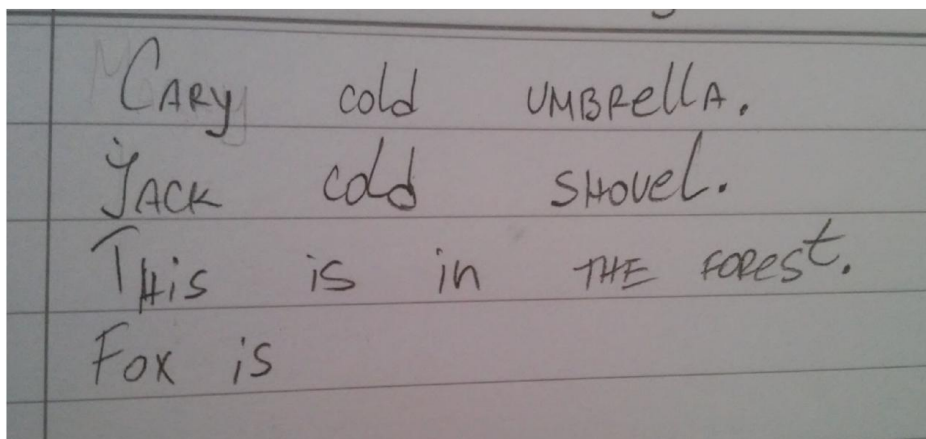 CARY cold UMBRellA.
JACK cold SHOVEL.
THis is in THE FOREST.
Fox is